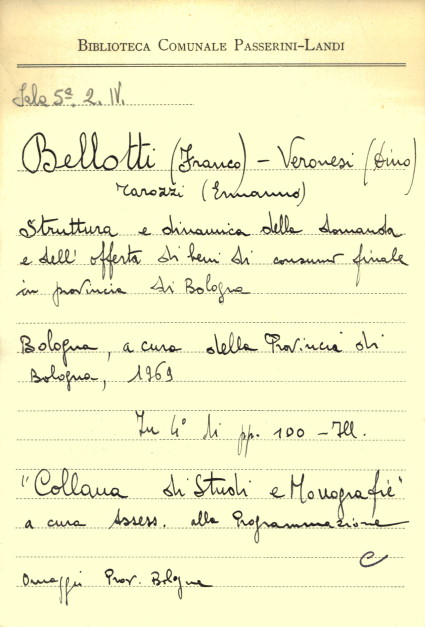 BIBLIOTECA COMUNALE PASSERINI-LANDI
Sala 5ª. 2. IV.
Bellotti (Franco) - Veronesi (Dino)
Tarozzi (Ermanno)
Struttura e dinamica della domanda
e dell'offerta di beni di consumo finale
in provincia di Bologna
Bologna, a cura della Provincia di
Bologna, 1969
In 4° di pp. 100 - Ill.
"Collana di Studi e Monografie"
a cura Assess. alla Programmazione
C
Omaggio Prov. Bologna